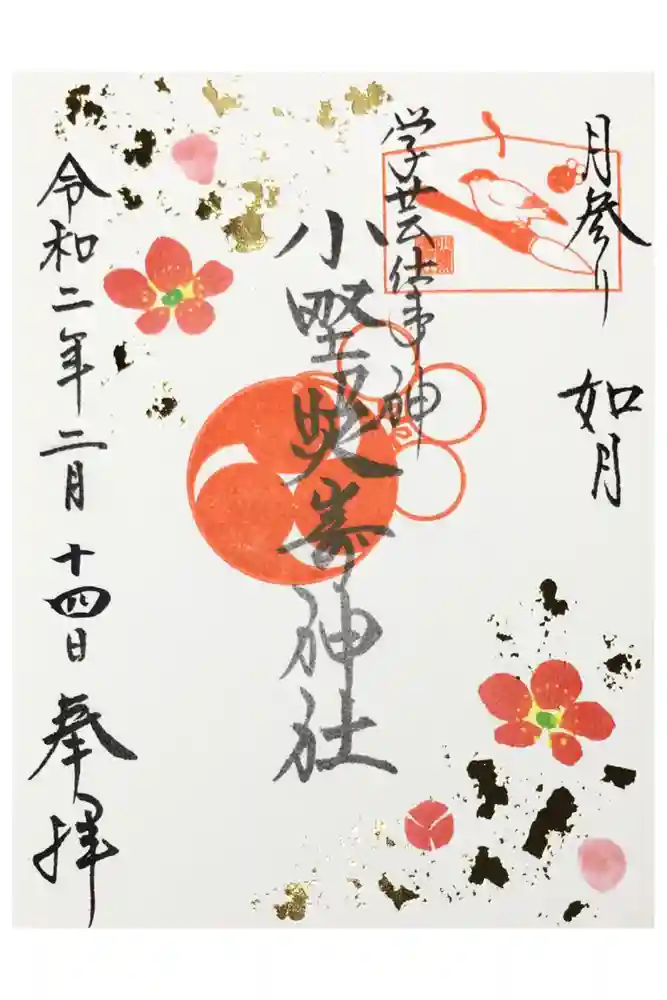 月参り
如月
学芸仕事神
小野照嵜神社
令和二年二月十四日 奉拝